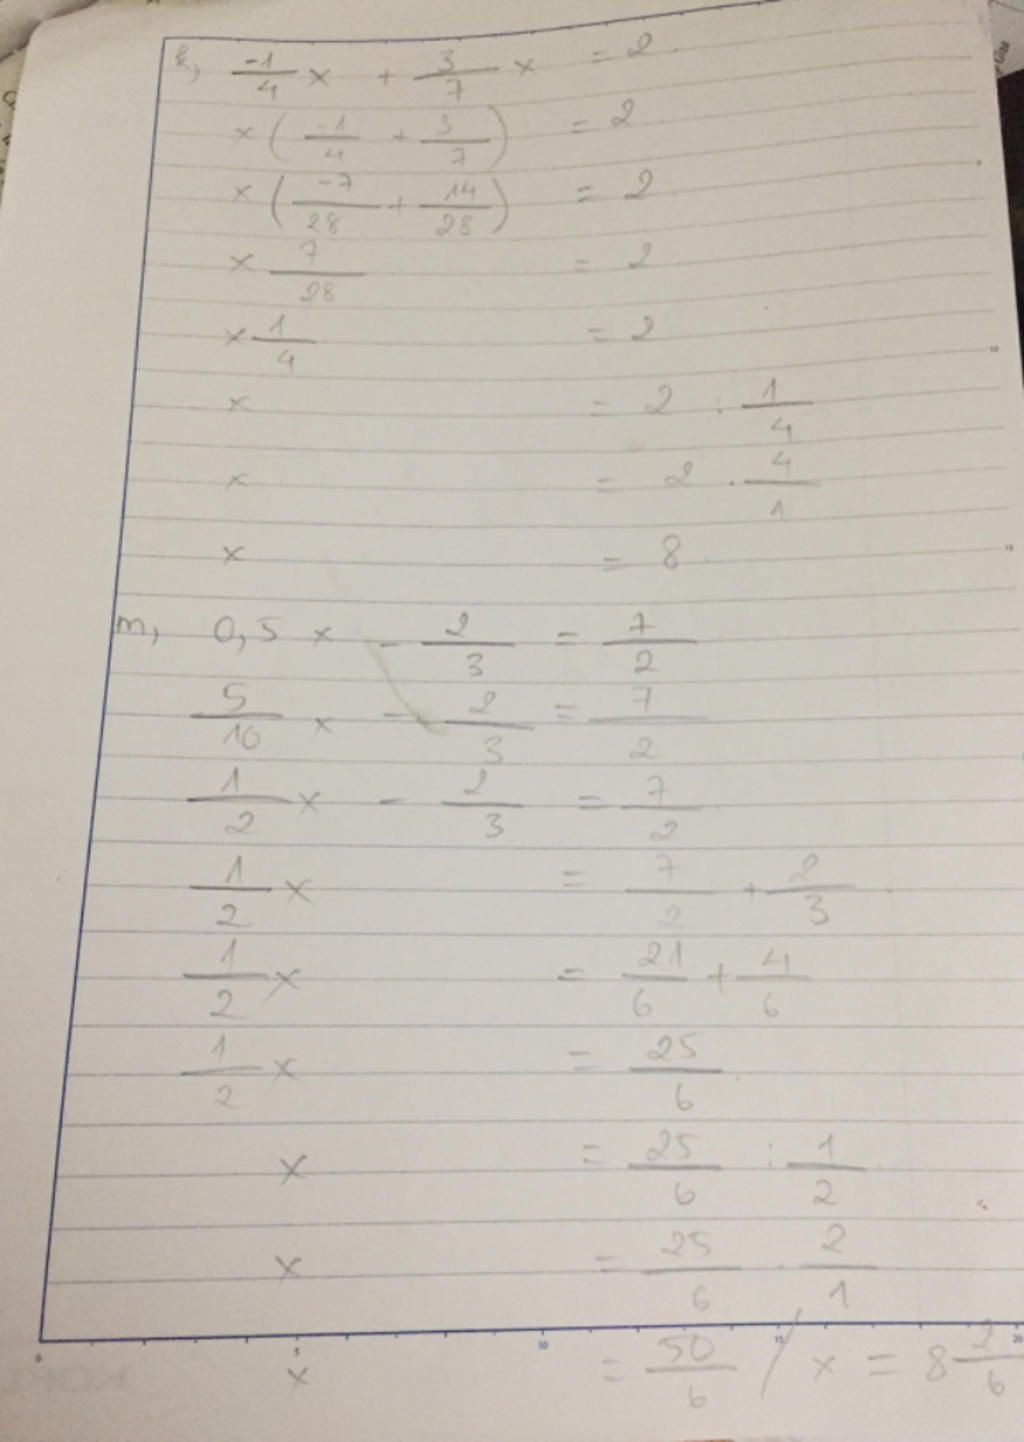 k, -1/4 x + 3/7 x = 2
x ( -1/4 + 3/7 ) = 2
x ( -7/28 + 14/28 ) = 2
x 7/28 = 2
x 1/4 = 2
x = 2 : 1/4
x = 2 . 4/1
x = 8
m, 0,5 x - 2/3 = 7/2
5/10 x - 2/3 = 7/2
1/2 x - 2/3 = 7/2
1/2 x = 7/2 + 2/3
1/2 x = 21/6 + 4/6
1/2 x = 25/6
x = 25/6 : 1/2
x = 25/6 . 2/1
0 5 10 15 20
x = 50/6 / x = 8 2/6